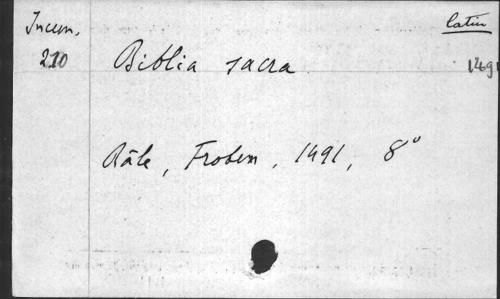 Incun. latin
210 Biblia sacra 1491
Bâle, Froben, 1491, 8°